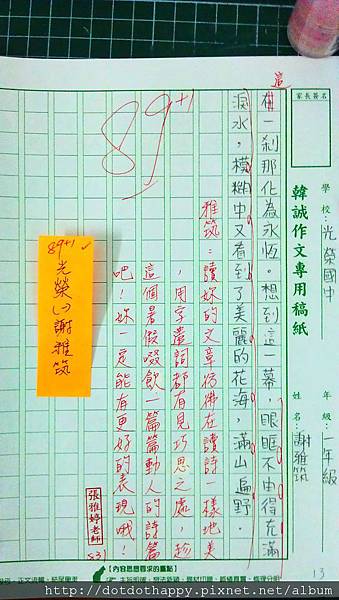 家長簽名
韓誠作文專用稿紙
學校：光榮國中
年級：一年級
姓名：謝雅筑
這
在一剎那化為永恆。想到這一幕，眼眶不由得充滿
淚水，模糊中又看到了美麗的花海，滿山遍野。
雅筑：讀妳的文章彷彿在讀詩一樣地美
，用字遣詞都有見巧思之處，於
這個暑假啜飲一篇篇動人的詩篇
吧！妳一定能有更好的表現哦！
張雅婷老師
8/31
89+1
89+1
光榮(一)謝雅筑
13
【內容思想要求的重點】
http://dotdothappy.pixnet.net/album